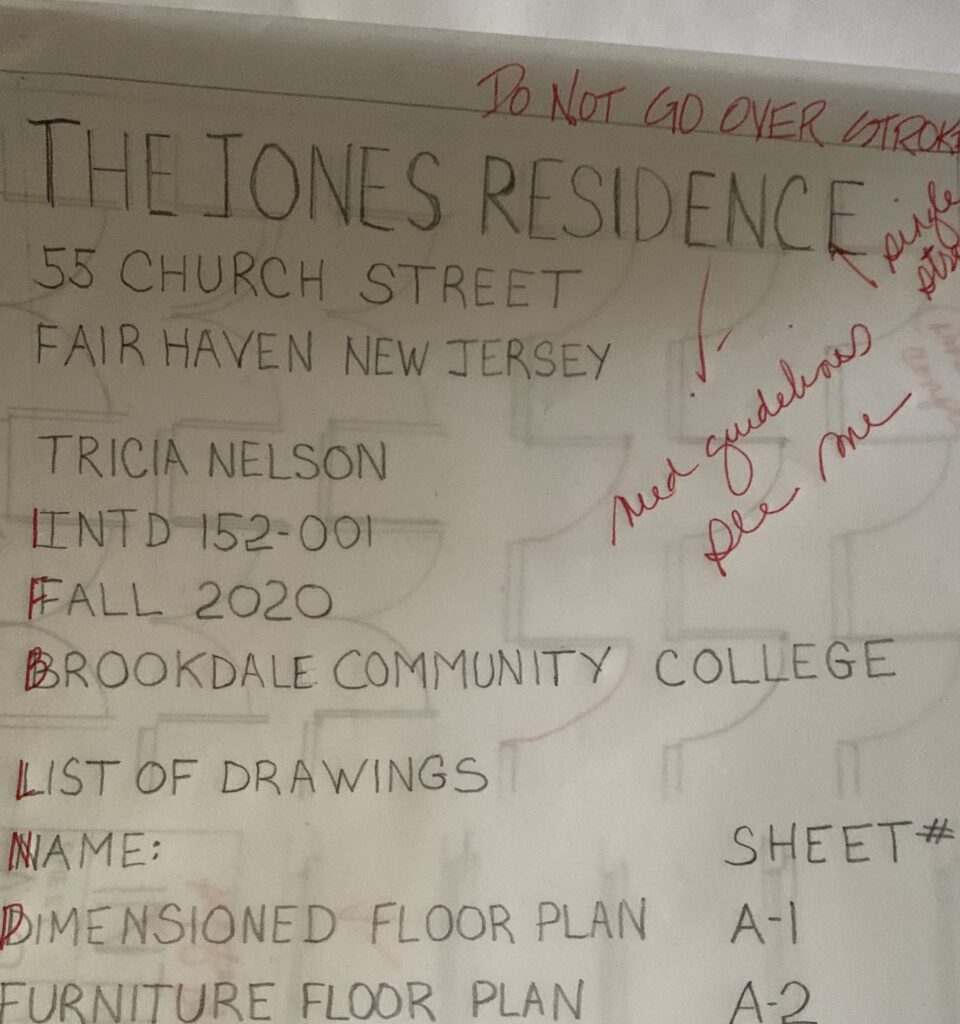 DO NOT GO OVER STROKE
THE JONES RESIDENCE
single
55 CHURCH STREET
FAIR HAVEN NEW JERSEY
need guidelines
see me
TRICIA NELSON
INTD 152-001
FALL 2020
BROOKDALE COMMUNITY COLLEGE
LIST OF DRAWINGS
NAME: SHEET#
DIMENSIONED FLOOR PLAN A-1
FURNITURE FLOOR PLAN A-2